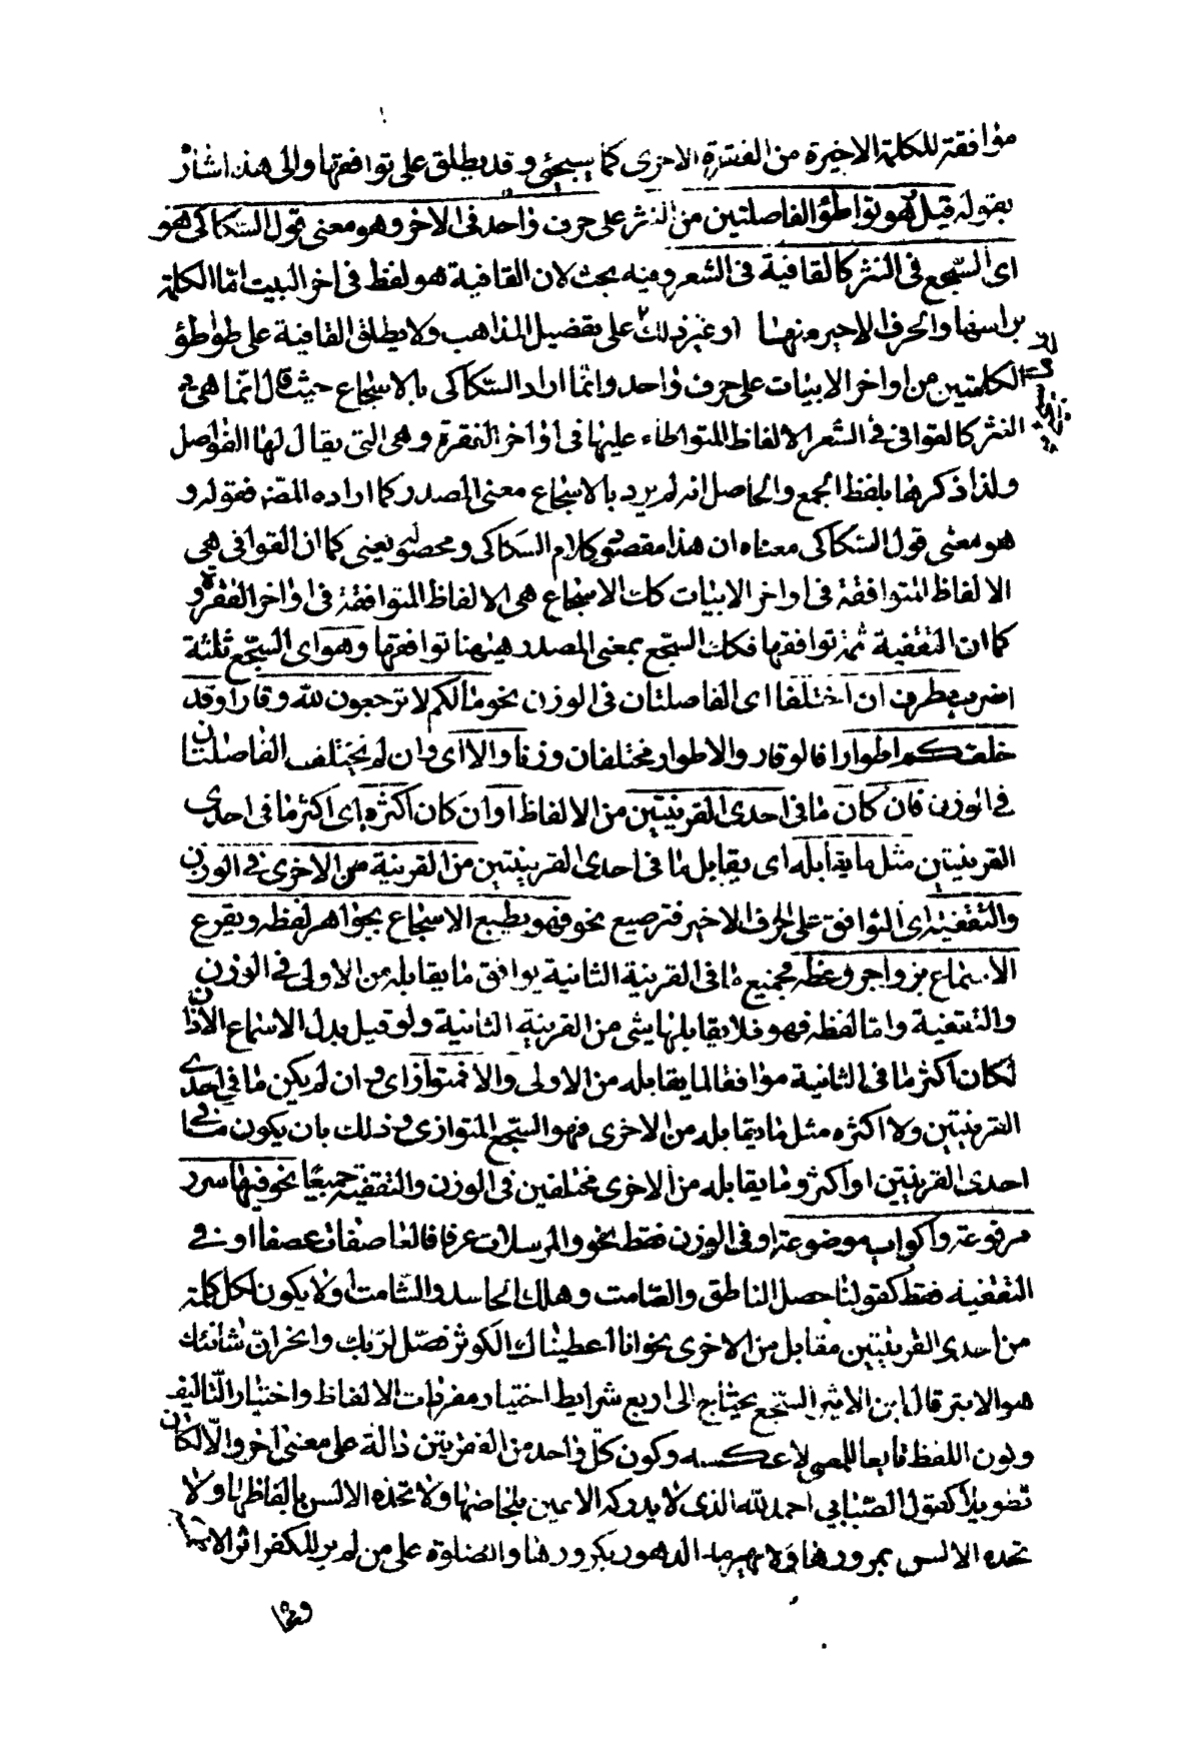 موافقة للكلمة الاخيرة من الفقرة الاخرى كما سيجئ وقد يطلق على توافقها والى هذا اشار
بقوله قيل هو تواطؤ الفاصلتين من النثر على حرف واحد فى الاخر وهو معنى قول السكاكى هو
اى السجع فى النثر كالقافية فى الشعر وفيه بحث لان القافية هو لفظ فى اخر البيت اما الكلمة
براسها والحرف الاخير منها او غير ذلك على تفضيل المذاهب ولا يطلق القافية على طواطؤ
الكلمتين من اواخر الابيات على حرف واحد وانما اراد السكاكى بالاسجاع حيث قال انما هى فى
النثر كالقوافى فى الشعر الالفاظ المتواطاء عليها فى اواخر الفقرة وهى التى يقال لها الفواصل
ولذا ذكرها بلفظ الجمع والحاصل انه لم يرد بالاسجاع معنى المصدر كما اراده المص فقوله و
هو معنى قول السكاكى معناه ان هذا مقصود كلام السكاكى ومحصوله يعنى كما ان القوافى هى
الالفاظ المتوافقة فى اواخر الابيات كك الاسجاع هى الالفاظ المتوافقة فى اواخر الفقرة و
كما ان التقفية ثمة توافقها فكك السجع بمعنى المصدر هيهنا توافقها وهو اى السجع ثلثة
اضرب مطرف ان اختلفا اى الفاصلتان فى الوزن نحو مالكم لا ترجعون لله وقارا وقد
خلقكم اطوارا فالوقار والاطوار مختلفان وزنا والا اى وان لم يختلف الفاصلتان
فى الوزن فان كان ما فى احدى القرينتين من الالفاظ او ان كان اكثره اى اكثر ما فى احدى
القرينتين مثل ما يقابله اى يقابل ما فى احدى القرينتين من القرينة من الاخرى فى الوزن
والتقفية اى التوافق على الحرف الاخير فترصيع نحو فهو يطبع الاسجاع بجواهر لفظه ويقرع
الاسماع بزواجر وعظه فجميع ما فى القرينة الثانية يوافق ما يقابله من الاولى فى الوزن
والتقفية واما لفظه فهو فلا يقابلها شئ من القرينة الثانية ولو قيل بدل الاسماع الاذان
لكان اكثر ما فى الثانية موافقا لما يقابله من الاولى والا فمتواز اى وان لم يكن ما فى احدى
القرينتين ولا اكثره مثل ما يقابله من الاخرى فهو السجع المتوازى وذلك بان يكون ما فى
احدى القرينتين او اكثر وما يقابله من الاخرى مختلفين فى الوزن والتقفية جميعا نحو فيها سرر
مرفوعة واكواب موضوعة او فى الوزن فقط نحو والمرسلات عرفا فالعاصفات عصفا او فى
التقفية فقط كقولنا حصل الناطق والصامت وهلك الحاسد والشامت او لا يكون لكل كلمة
من احدى القرينتين مقابل من الاخرى نحو انا اعطيناك الكوثر فصل لربك وانحر ان شانئك
هو الابتر قال ابن الاثير السجع يحتاج الى اربع شرايط اختيار مفردات الالفاظ واختيار التاليف
وكون اللفظ تابعا للمعنى لا عكسه وكون كل واحد من الفقرتين دالة على معنى اخر والا لكان
تطويلا كقول الصابى احمد لله الذى لا يدركه الاعين بلحاضها ولا تحده الالس بالفاظها ولا
تحده الالس بمرورها ولا الدهور بكرورها والصلوة على من لم ير للكفر اثر الا